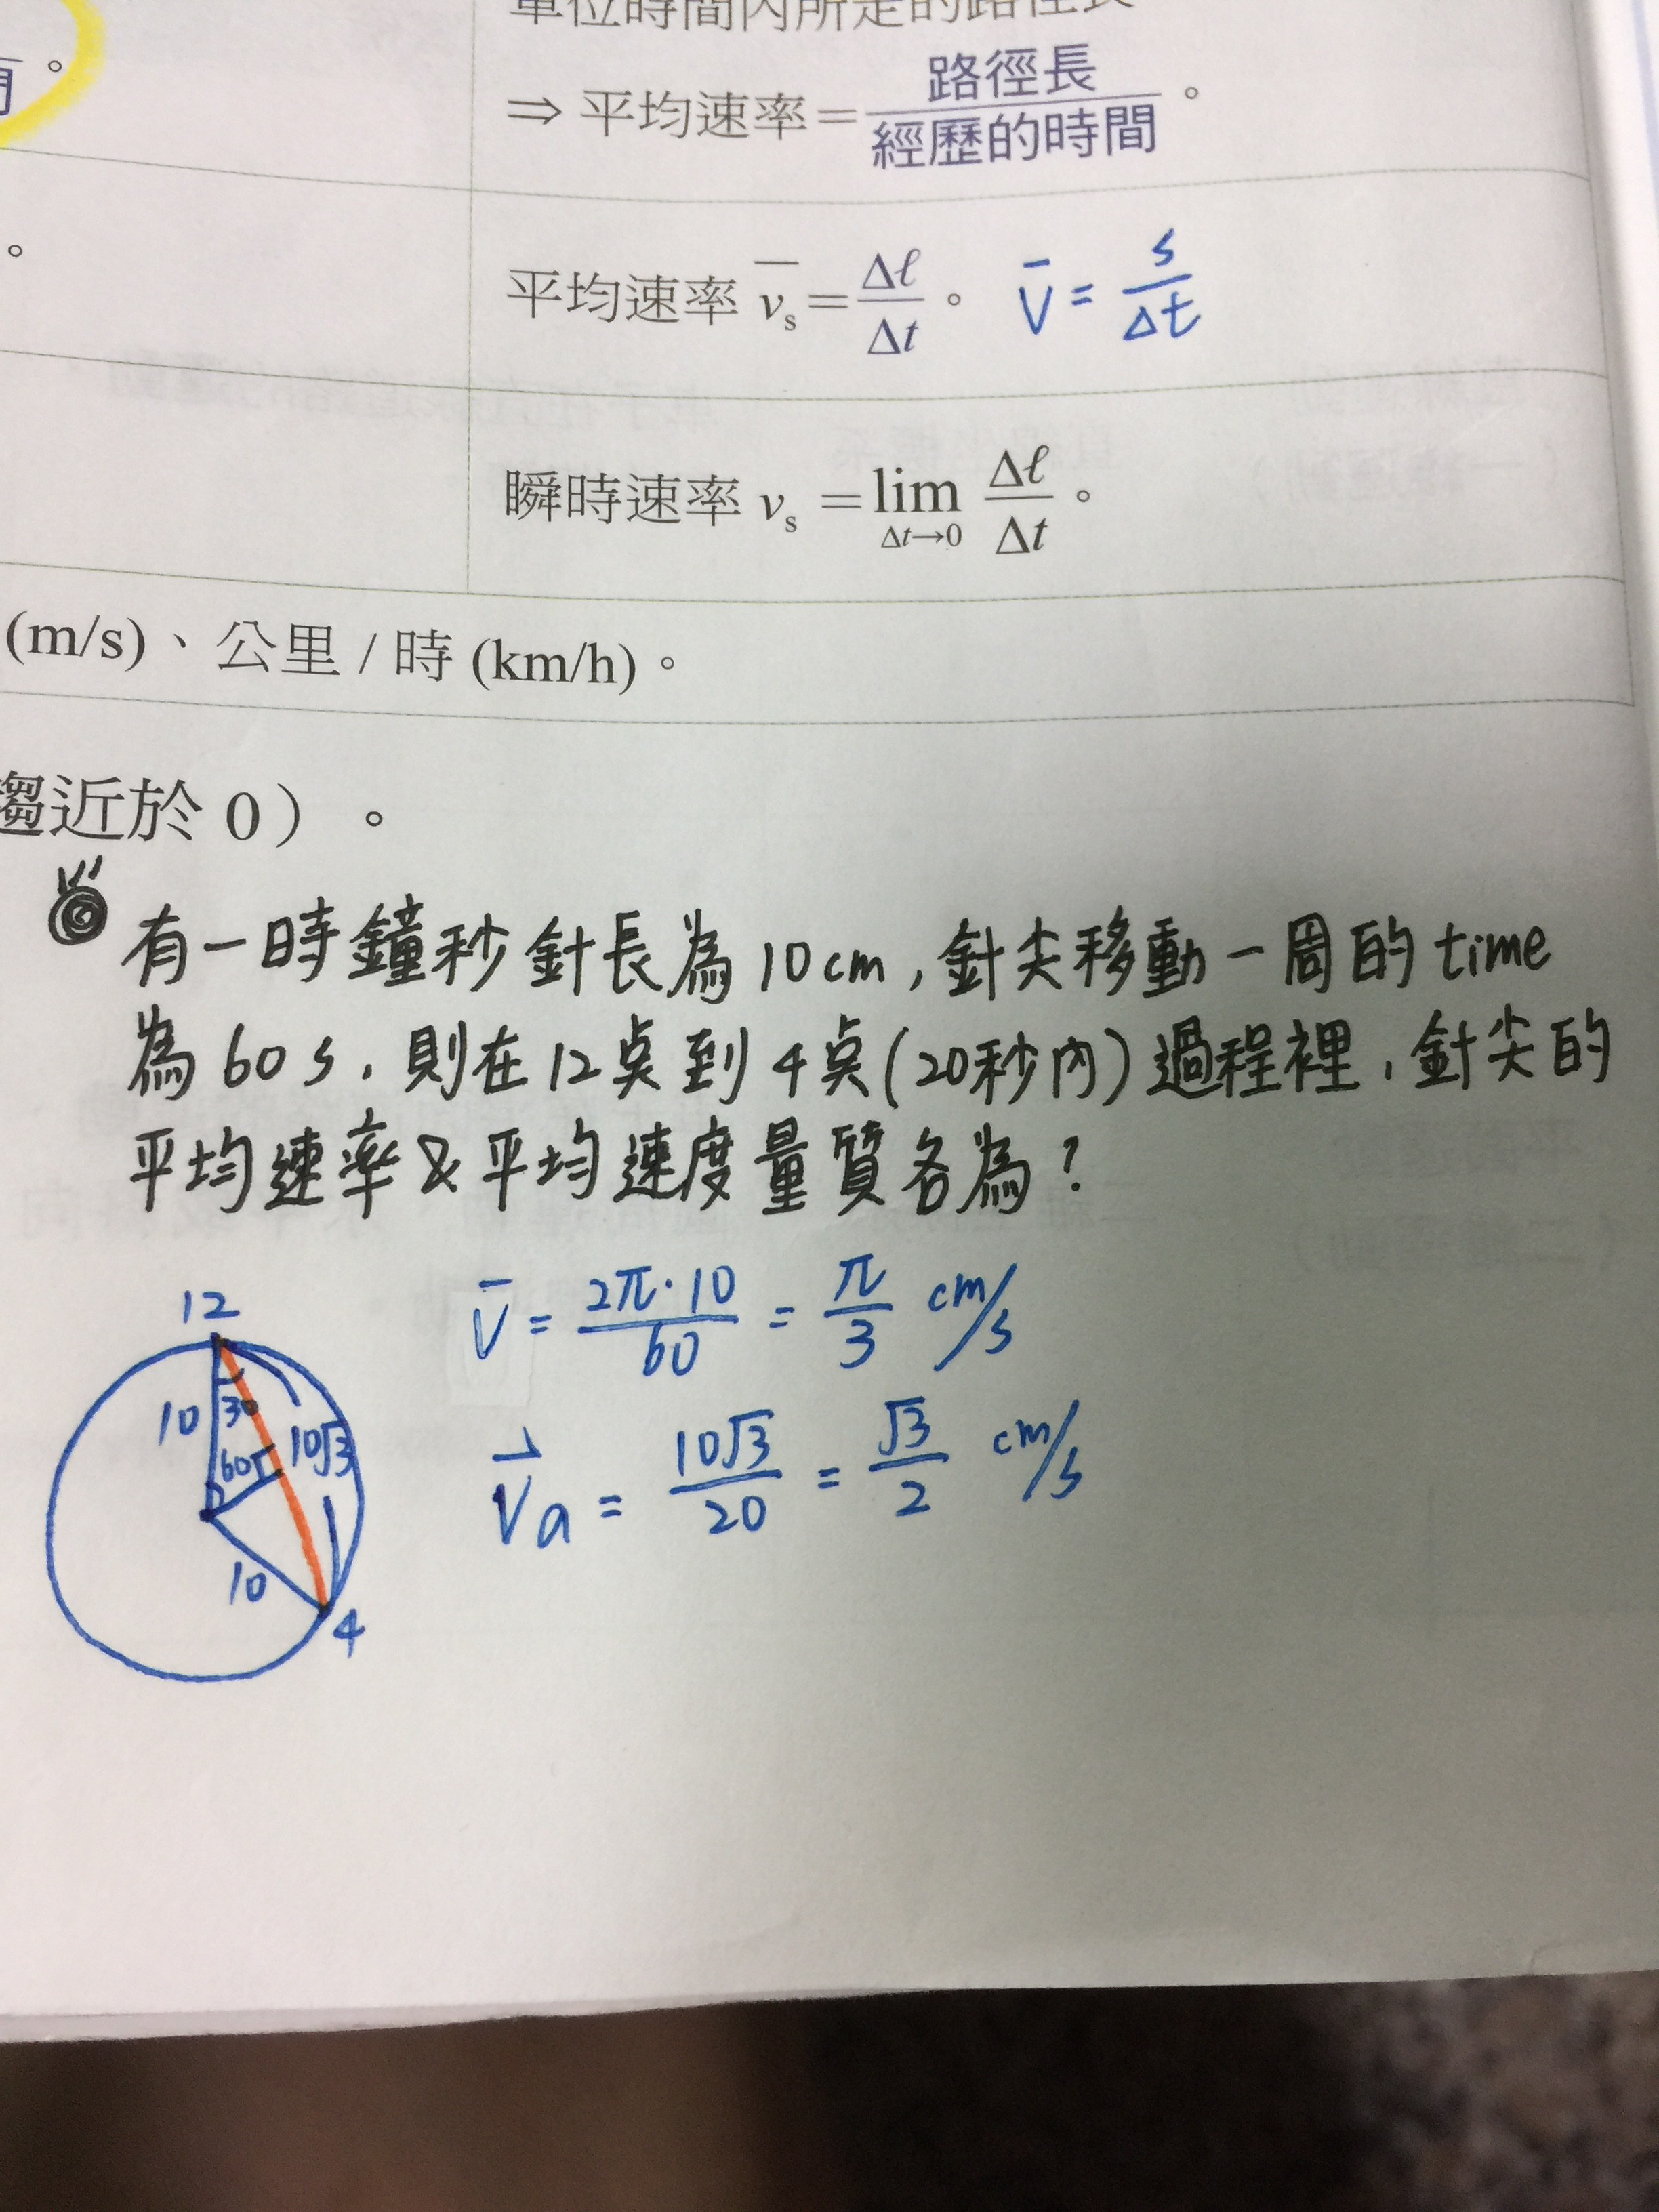 單位時間內所走的路徑長
⇒ 平均速率 = 路徑長 / 經歷的時間 。
。
平均速率 v̄s = Δℓ / Δt 。 V̄ = s / Δt
瞬時速率 vs = lim Δt→0 Δℓ / Δt 。
(m/s)、公里 / 時 (km/h)。
趨近於 0）。
有一時鐘秒針長為10cm,針尖移動一周的time
為60s,則在12点到4点(20秒內)過程裡,針尖的
平均速率&平均速度量質各為?
V̄ = 2π·10 / 60 = π / 3 cm/s
V⃗a = 10√3 / 20 = √3 / 2 cm/s
12
10 30
60 10√3
10
4